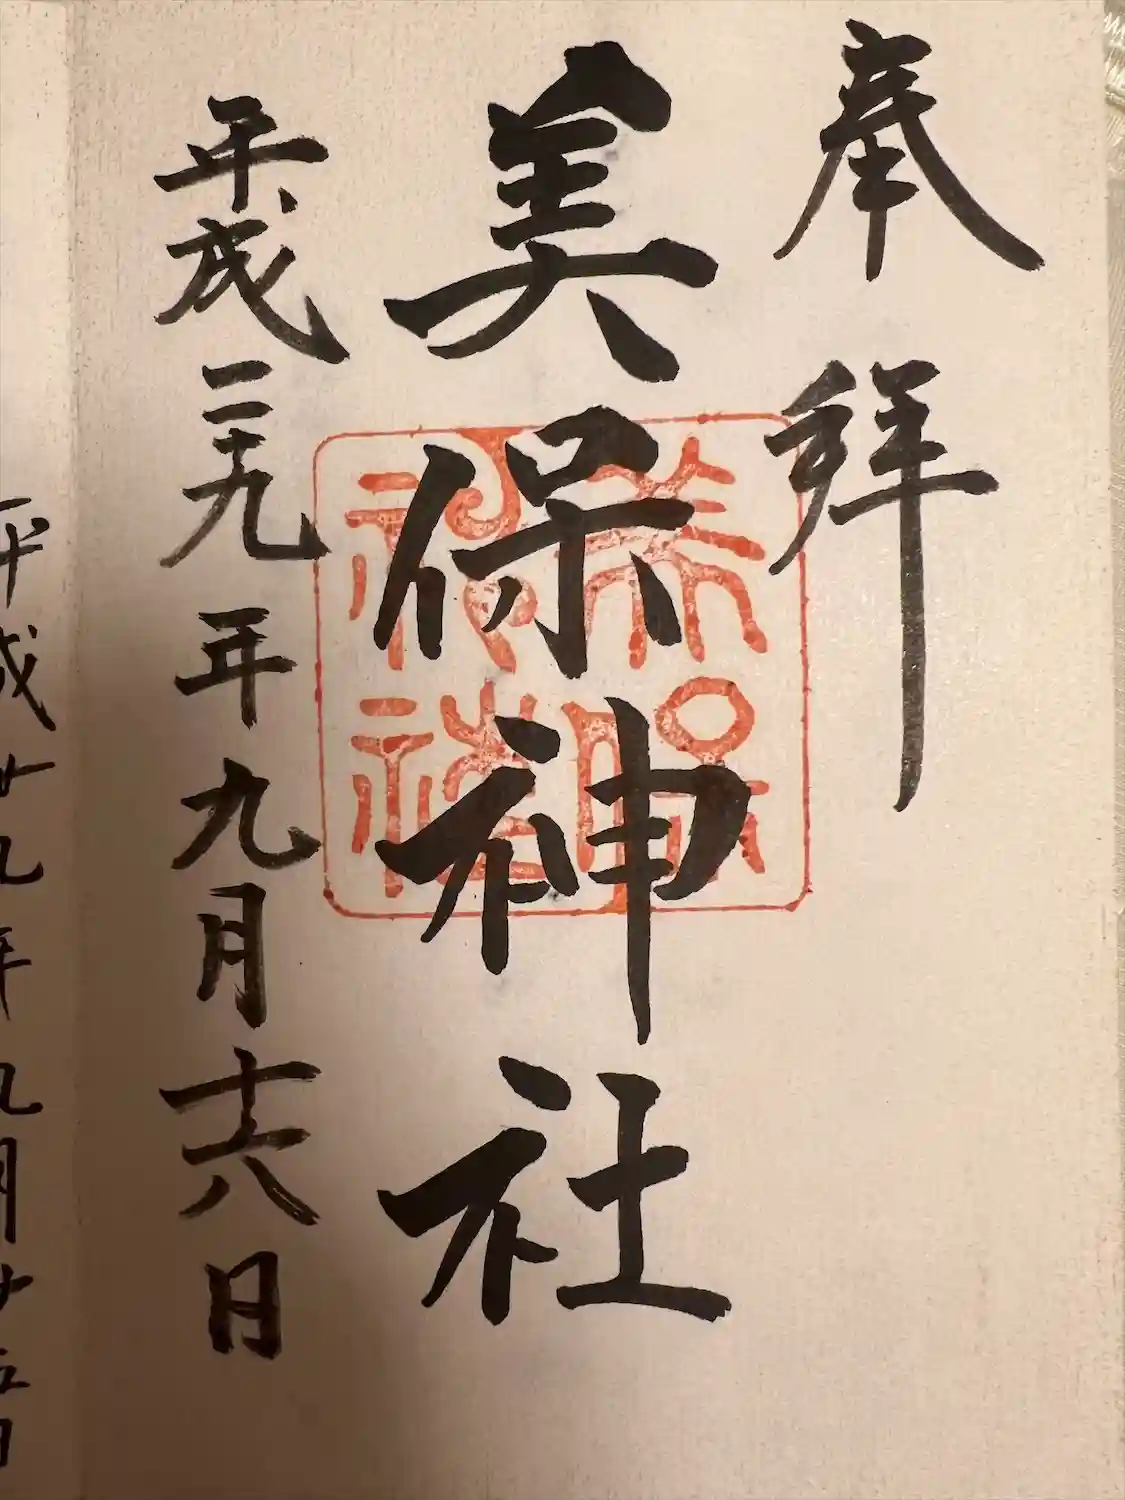 奉拜
美保神社
美保
神社
平成二十九年九月十六日
平成廿九年九月廿五日